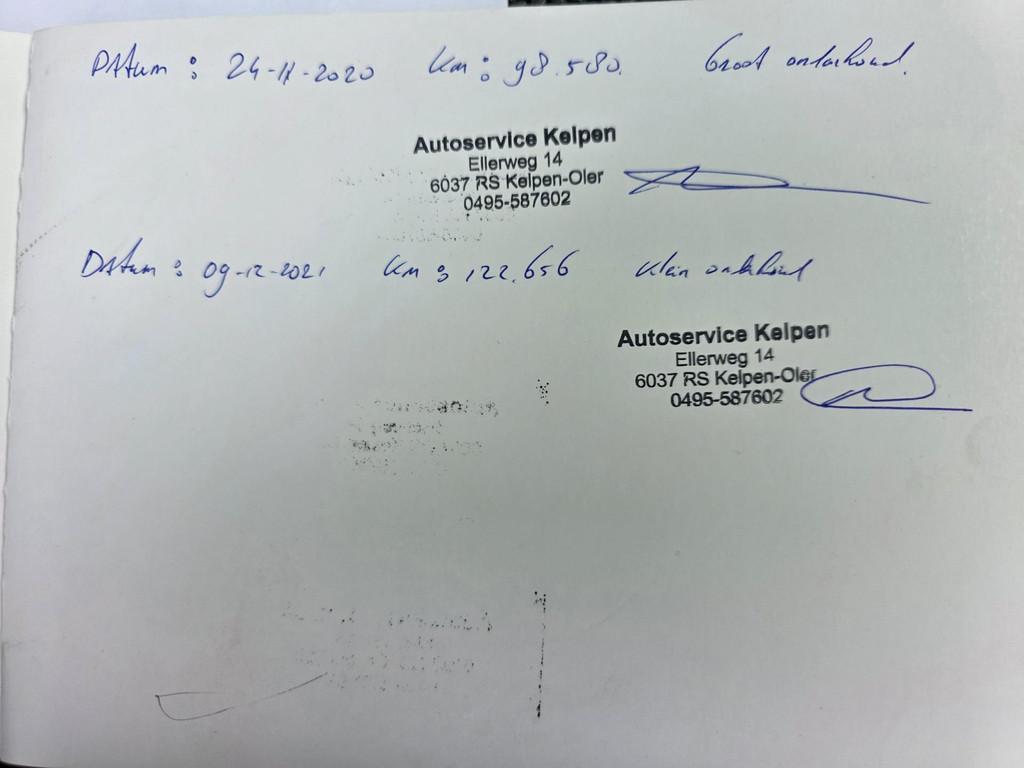 Datum : 24-11-2020 Km : 98.580. Groot onderhoud.
Autoservice Kelpen
Ellerweg 14
6037 RS Kelpen-Oler
0495-587602
Datum : 09-12-2021 Km : 122.656 Klein onderhoud
Autoservice Kelpen
Ellerweg 14
6037 RS Kelpen-Oler
0495-587602